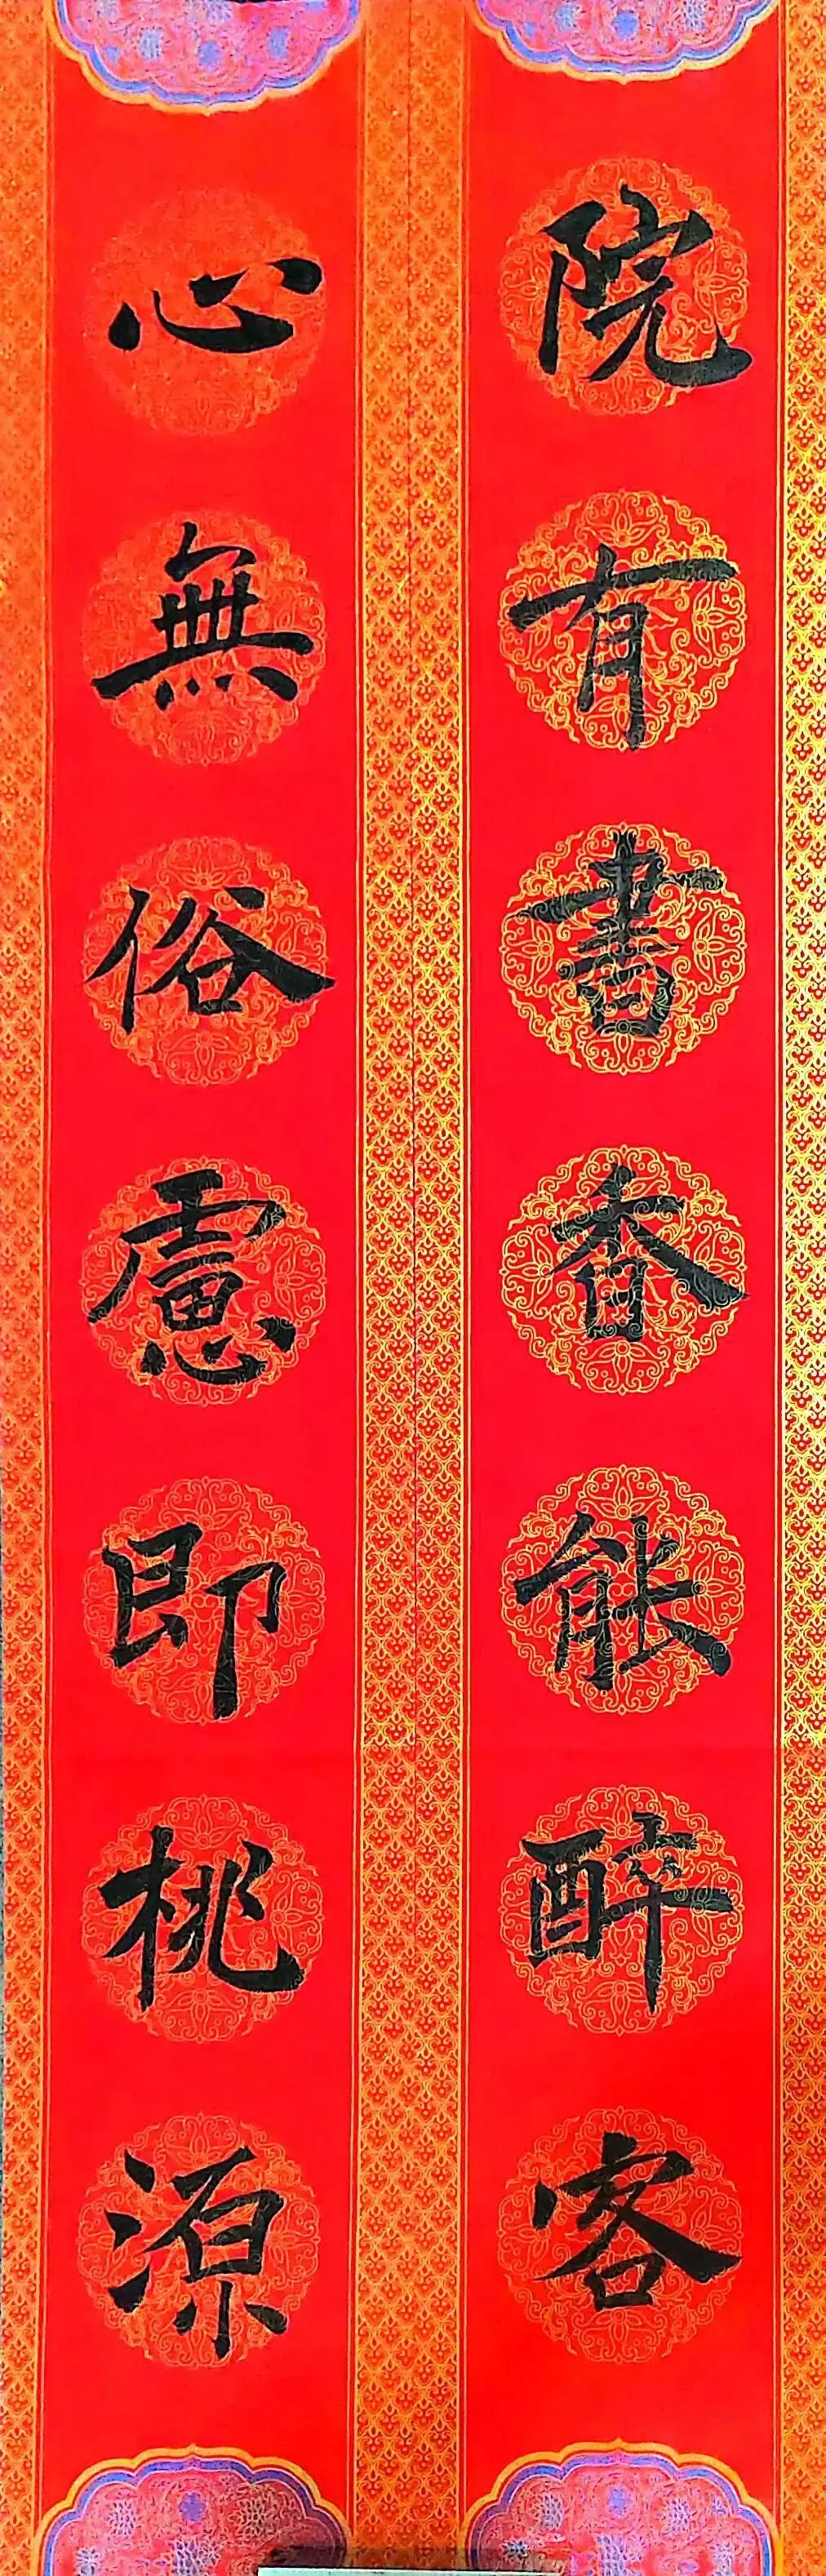 院有書香能醉客
心無俗慮即桃源